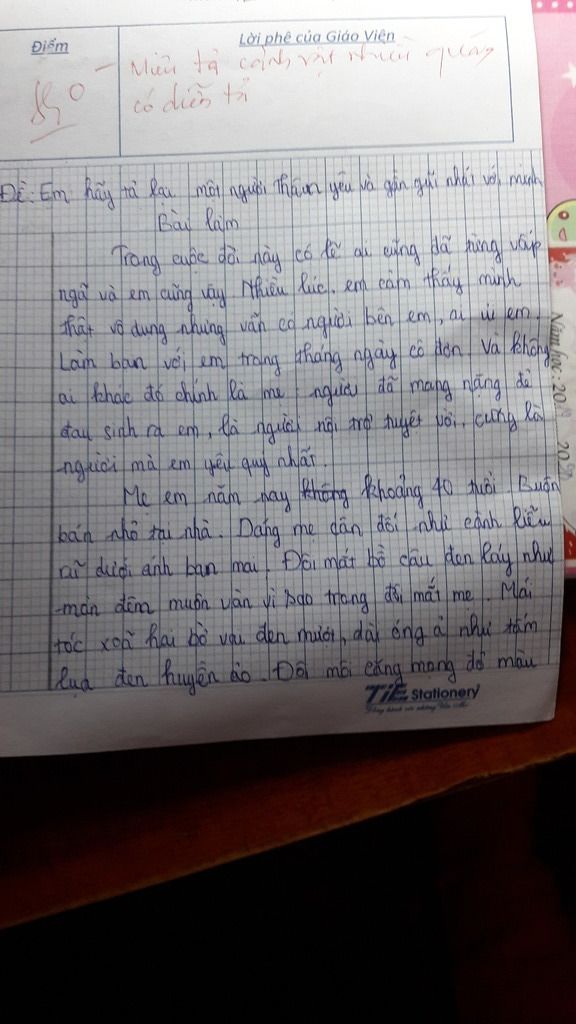 Điểm
Lời phê của Giáo Viên
Miêu tả cảnh vật nhiều
có diễn tả
Đề: Em hãy tả lại một người thân yêu và gần gũi nhất với mình
Bài làm
Trong cuộc đời này có lẽ ai cũng đã từng vấp
ngã và em cũng vậy Nhiều lúc, em cảm thấy mình
thật vô dụng nhưng vẫn có người bên em, ai ủi em.
Làm bạn với em trong tháng ngày cô đơn. Và không
ai khác đó chính là mẹ người đã mang nặng đẻ
đau sinh ra em, là người nội trợ tuyệt vời, cũng là
người mà em yêu quý nhất.
Mẹ em năm nay khoảng 40 tuổi Buôn
bán nhỏ tại nhà. Dáng mẹ cân đối như cành liễu
dưới ánh ban mai. Đôi mắt bồ câu đen láy như
màn đêm muôn vàn vì sao trong đôi mắt mẹ. Mái
tóc xoã hai bờ vai đen mướt, dài óng ả như tấm
lụa đen huyền ảo. Đôi môi căng mọng đỏ màu
TiE Stationery
Năm học: 20 20